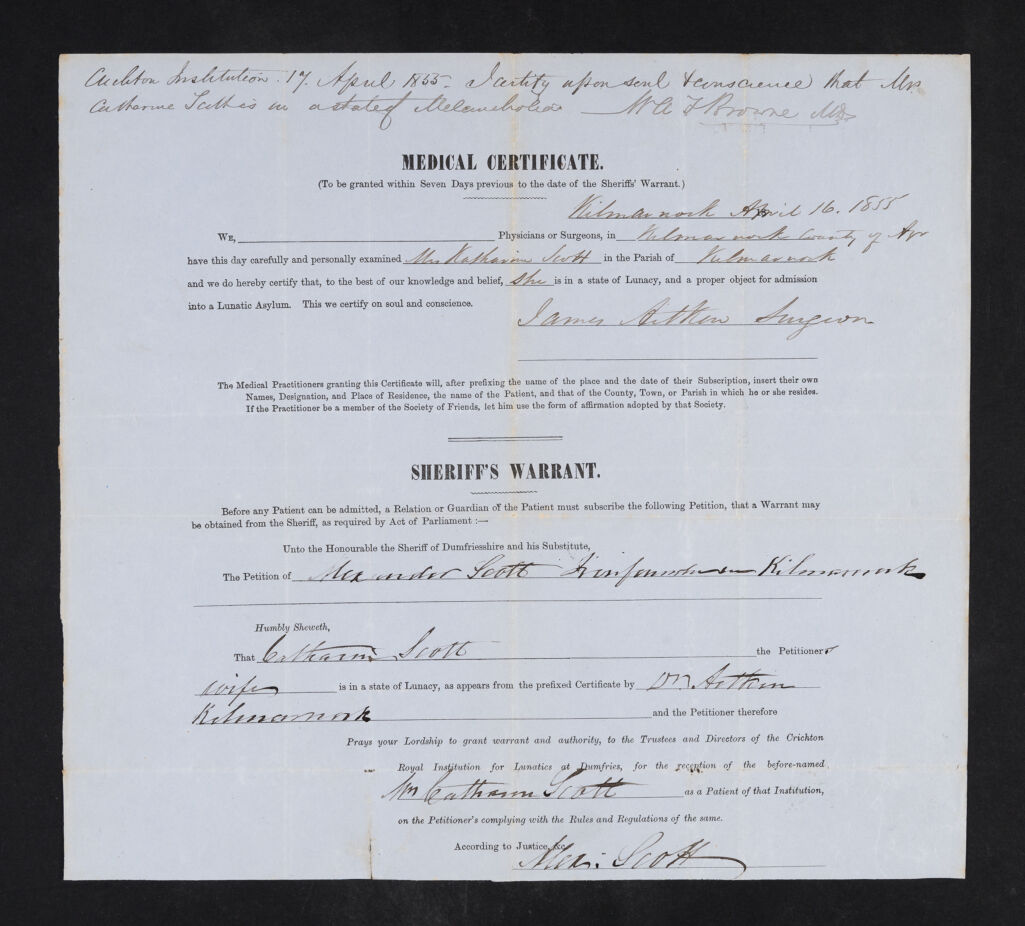 Crichton Institution. 17. April 1855. I certify upon soul & conscience that Mrs
Catharine Scott is in a state of Melancholia W A F Browne MD.
MEDICAL CERTIFICATE.
(To be granted within Seven Days previous to the date of the Sheriffs' Warrant.)
Kilmarnock April 16. 1855
WE, Physicians or Surgeons, in Kilmarnock County of Ayr
have this day carefully and personally examined Mrs Katharine Scott in the Parish of Kilmarnock
and we do hereby certify that, to the best of our knowledge and belief, She is in a state of Lunacy, and a proper object for admission
into a Lunatic Asylum. This we certify on soul and conscience.
James Aitken Surgeon
The Medical Practitioners granting this Certificate will, after prefixing the name of the place and the date of their Subscription, insert their own
Names, Designation, and Place of Residence, the name of the Patient, and that of the County, Town, or Parish in which he or she resides.
If the Practitioner be a member of the Society of Friends, let him use the form of affirmation adopted by that Society.
SHERIFF'S WARRANT.
Before any Patient can be admitted, a Relation or Guardian of the Patient must subscribe the following Petition, that a Warrant may
be obtained from the Sheriff, as required by Act of Parliament :—
Unto the Honourable the Sheriff of Dumfriesshire and his Substitute,
The Petition of Alexander Scott Kilmarnock
Humbly Sheweth,
That Catharine Scott the Petitioners
wife is in a state of Lunacy, as appears from the prefixed Certificate by Dr Aitken
Kilmarnock and the Petitioner therefore
Prays your Lordship to grant warrant and authority, to the Trustees and Directors of the Crichton
Royal Institution for Lunatics at Dumfries, for the reception of the before-named
Mrs Catharine Scott as a Patient of that Institution,
on the Petitioner's complying with the Rules and Regulations of the same.
According to Justice, &c.
Alexr. Scott